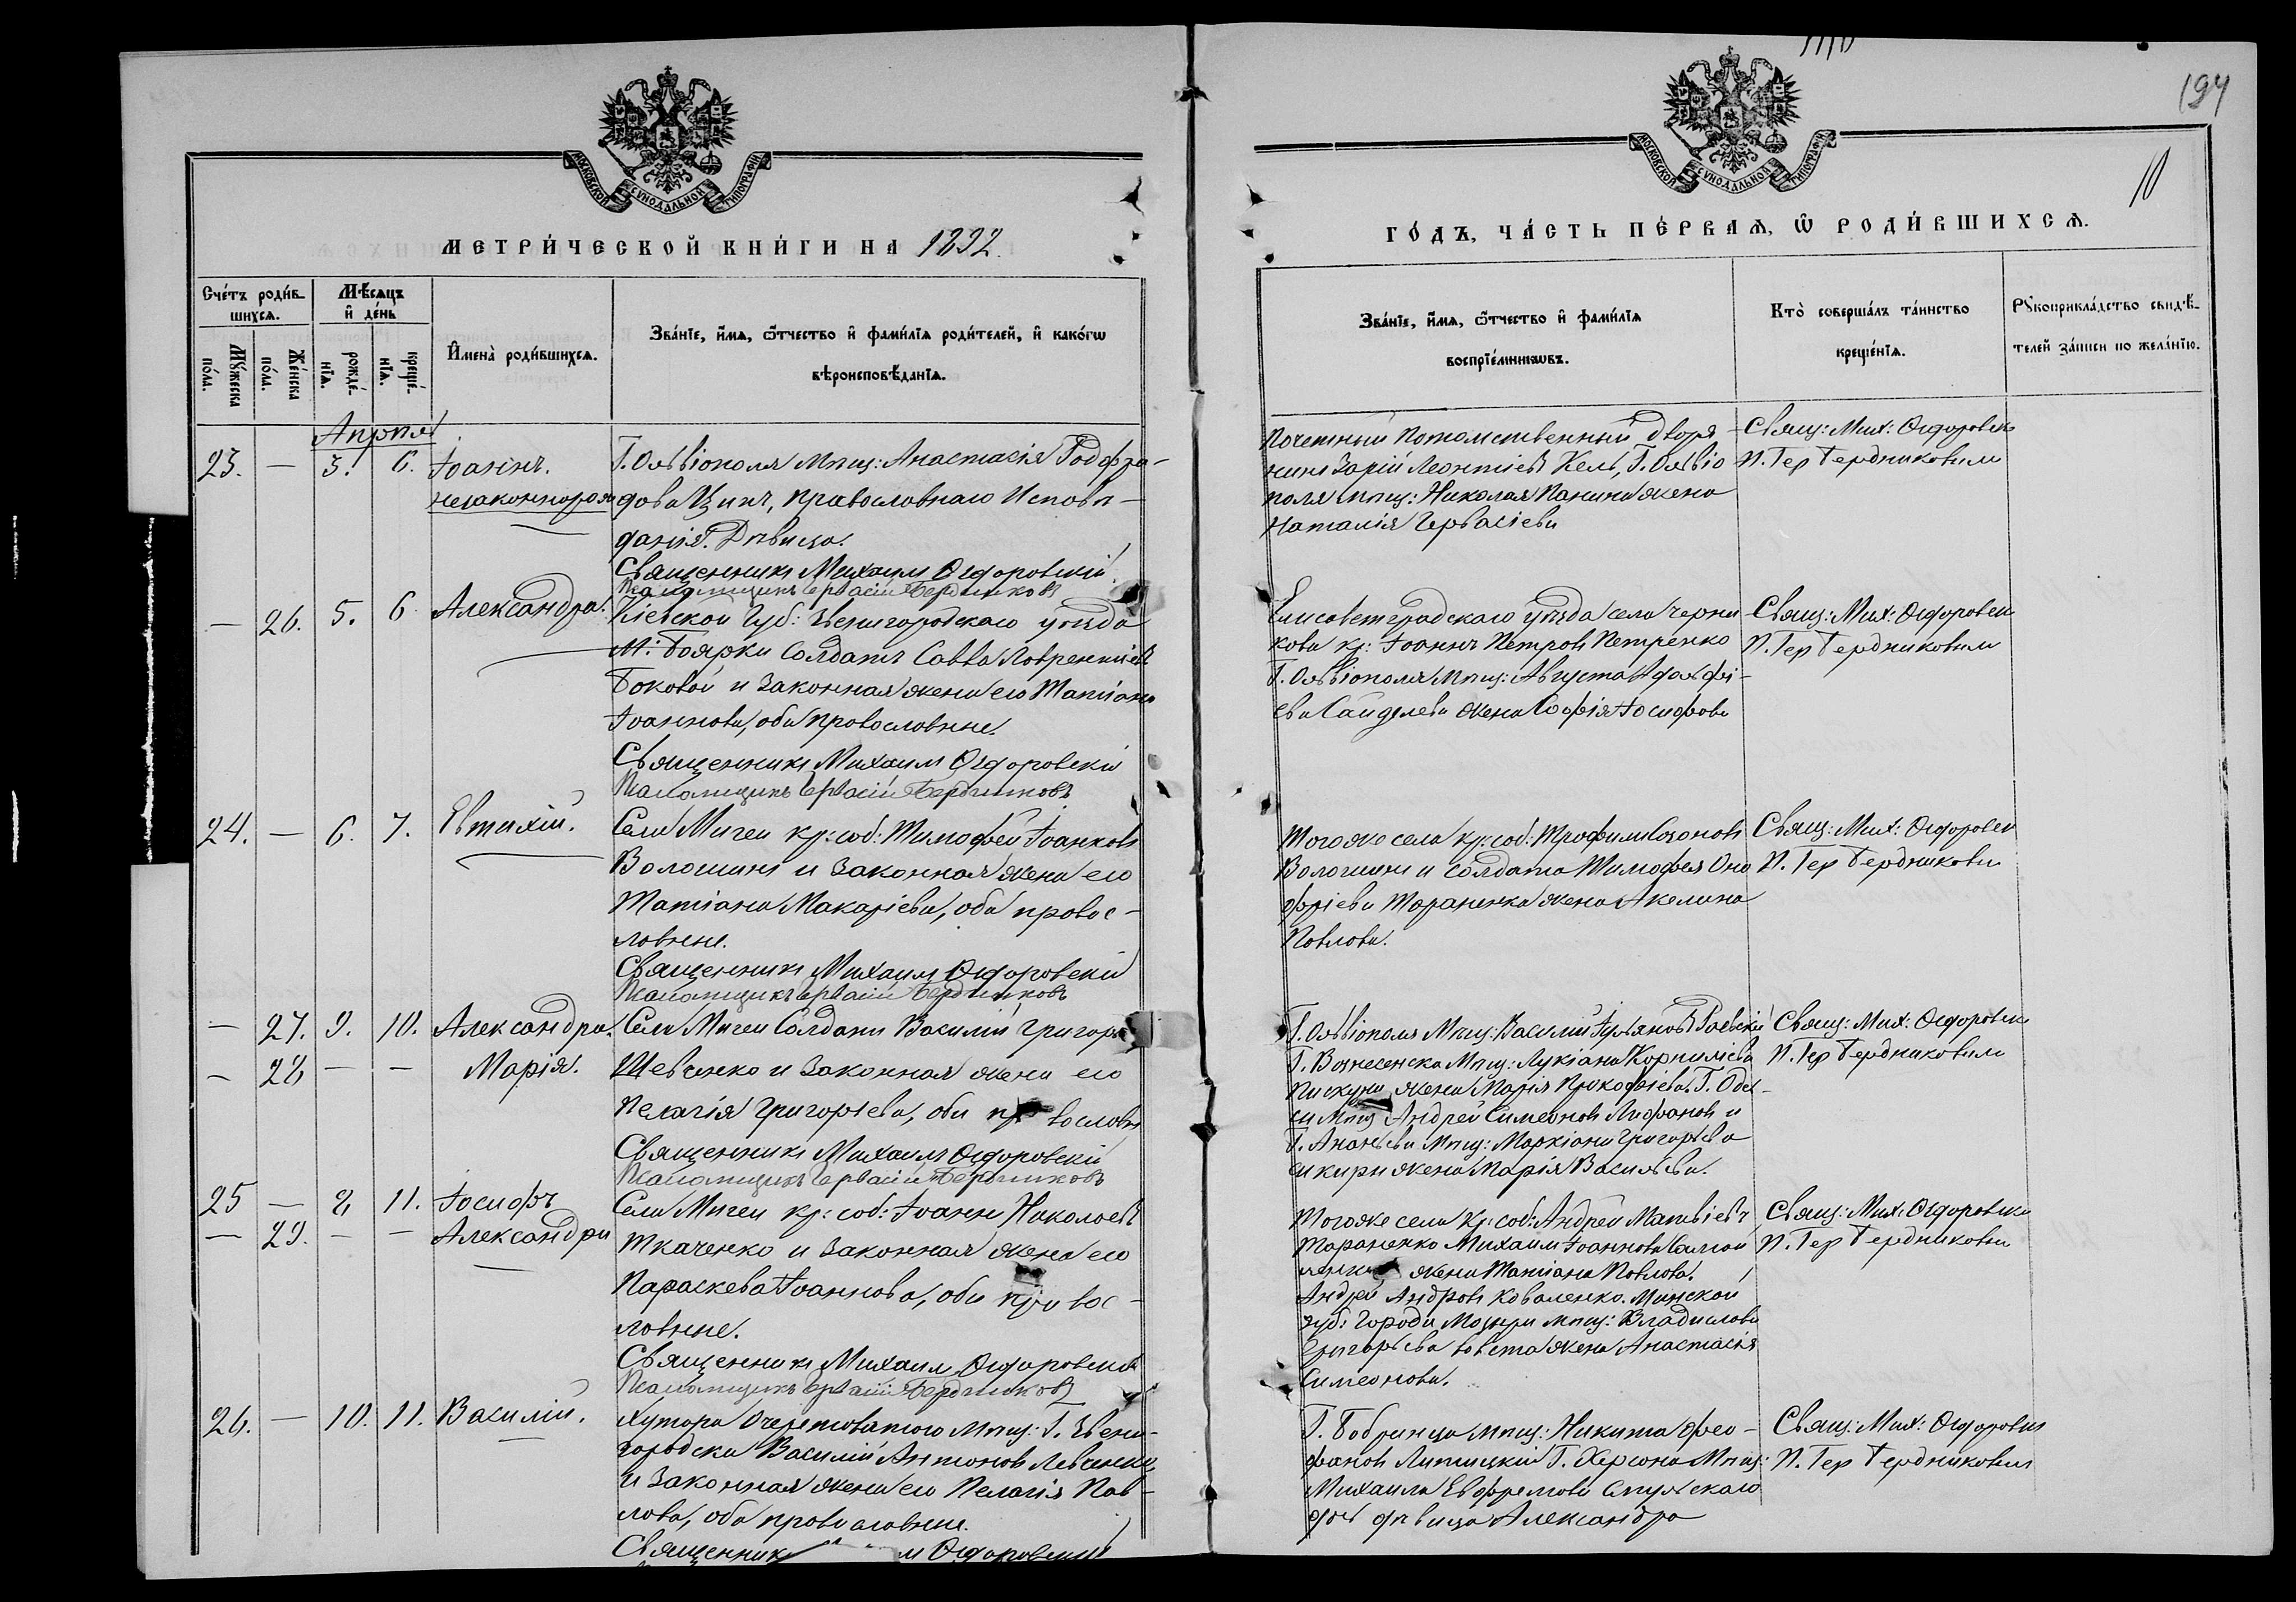 194
10
МОСКОВСКОЙ СУНОДАЛЬНОЙ ТИПОГРАФІИ
МЕТРИ́ЧЕСКОЙ КНИ́ГИ НА 1892.
Сче́тъ роди́вшихсѧ.
Мꙋ́жеска по́ла.
Же́нска по́ла.
Мѣ́сѧцъ и҆ де́нь
рожде́нїѧ.
креще́нїѧ.
И҆мена̀ роди́вшихсѧ.
Зва́нїе, и҆́мѧ, ѻ҆́тчество и҆ фами́лїѧ роди́телей, и҆ како́гѡ
вѣроисповѣ́данїѧ.
Апрѣля
23. — 3. 6. Іоаннъ.
незаконнорож
Г. Ольвіополя Мѣщ: Анастасія Годфри-
дова Цинъ, православнаго Исповѣ-
данія. Дѣвица.
Священникъ Михаилъ Ѳедоровскій
Псаломщикъ Гервасій Бердниковъ
— 26. 5. 6 Александра.
Кіевской Губ: Звенигородскаго уѣзда
М. Боярки Солдатъ Савва Лаврентіевъ
Боковой и Законная жена его Татіана
Іоаннова, оба православные.
Священникъ Михаилъ Ѳедоровскій
Псаломщикъ Гервасій Бердниковъ
24. — 6. 7. Евтихій.
Села Мигеи кр: соб: Тимофей Іоанновъ
Волошинъ и Законная жена его
Татіана Макаріева, оба правос-
лавные.
Священникъ Михаилъ Ѳедоровскій
Псаломщикъ Гервасій Бердниковъ
— 27. 9. 10. Александра.
— 28 — — Марія.
Села Мигеи Солдатъ Василій Григорь
Шевченко и Законная жена его
Пелагія Григорьева, оба православн
Священникъ Михаилъ Ѳедоровскій
Псаломщикъ Гервасій Бердниковъ
25 — 8 11. Іосифъ
— 29. — — Александра
Села Мигеи кр: соб: Іоаннъ Николаевъ
Ткаченко и Законная жена его
Параскева Іоаннова, оба правос-
лавные.
Священникъ Михаилъ Ѳедоровскій
Псаломщикъ Гервасій Бердниковъ
26. — 10. 11. Василій.
Хутора Очеретоватого Мѣщ: Г. Звени-
городски Василій Антоновъ Левченко
и Законная жена его Пелагія Пав-
лова, оба православные.
Священник м Ѳедоровскій
МОСКОВСКОЙ СУНОДАЛЬНОЙ ТИПОГРАФІИ
ГО́ДЪ, ЧА́СТЬ ПЕ́РВАѦ, Ѡ҆ РОДИ́ВШИХСѦ.
Зва́нїе, и҆́мѧ, ѻ҆́тчество и҆ фами́лїѧ
воспрїе́мникѡвъ.
Кто̀ соверша́лъ та́инство
креще́нїѧ.
Рꙋкоприкла́дство свидѣ́-
телей за́писи по жела́нїю.
Почетный Потомственный дворя-
нинъ Зарій Леонтіевъ Кель, Г. Ольвіо
поля Мѣщ: Николая Панина жена
Наталія Гервасіева
Свящ: Мих: Ѳедоровск
П. Гер Бердниковым
Елисаветградскаго уѣзда села Черни
кова кр: Іоаннъ Петровъ Петренко
Г. Ольвіополя Мѣщ: Августа Адольфі-
ева Санделева жена Софія Іосифова
Свящ: Мих: Ѳедоровск
П. Гер Бердниковым
Того же села кр: соб: Трофимъ Созоновъ
Волошинъ и солдата Тимофея Оно
фріева Тараненка жена Акелина
Павлова.
Свящ: Мих: Ѳедоровск
П. Гер Бердникови
Г. Ольвіополя Мѣщ: Василій Іульяновъ Раевскій
Г. Вознесенска Мѣщ: Лукіана Корниліева
Пискуна жена Марія Прокофіева. Г. Одес-
сы Мѣщ Андрей Симеоновъ Лифановъ и
Г. Ананьева Мѣщ: Маркіана Григорьева
жена Марія Васильева.
Свящ: Мих: Ѳедоровск
П. Гер Бердниковым
Того же села Кр: соб: Андрей Матвіевъ
Тараненко Михаила Іоаннова
жена Татіана Павлова.
Андрей Андровъ Коваленко. Минской
губ: города Мозыри мѣщ: Владислава
Григорьева жена Анастасія
Симеонова.
Свящ: Мих: Ѳедоровск
П. Гер Бердникови
Г. Бобринца мѣщ: Никита Фео-
фановъ Липницкій Г. Херсона Мѣщ:
Михаила Евфремова
дочь дѣвица Александра
Свящ: Мих: Ѳедоровск
П. Гер Бердниковым